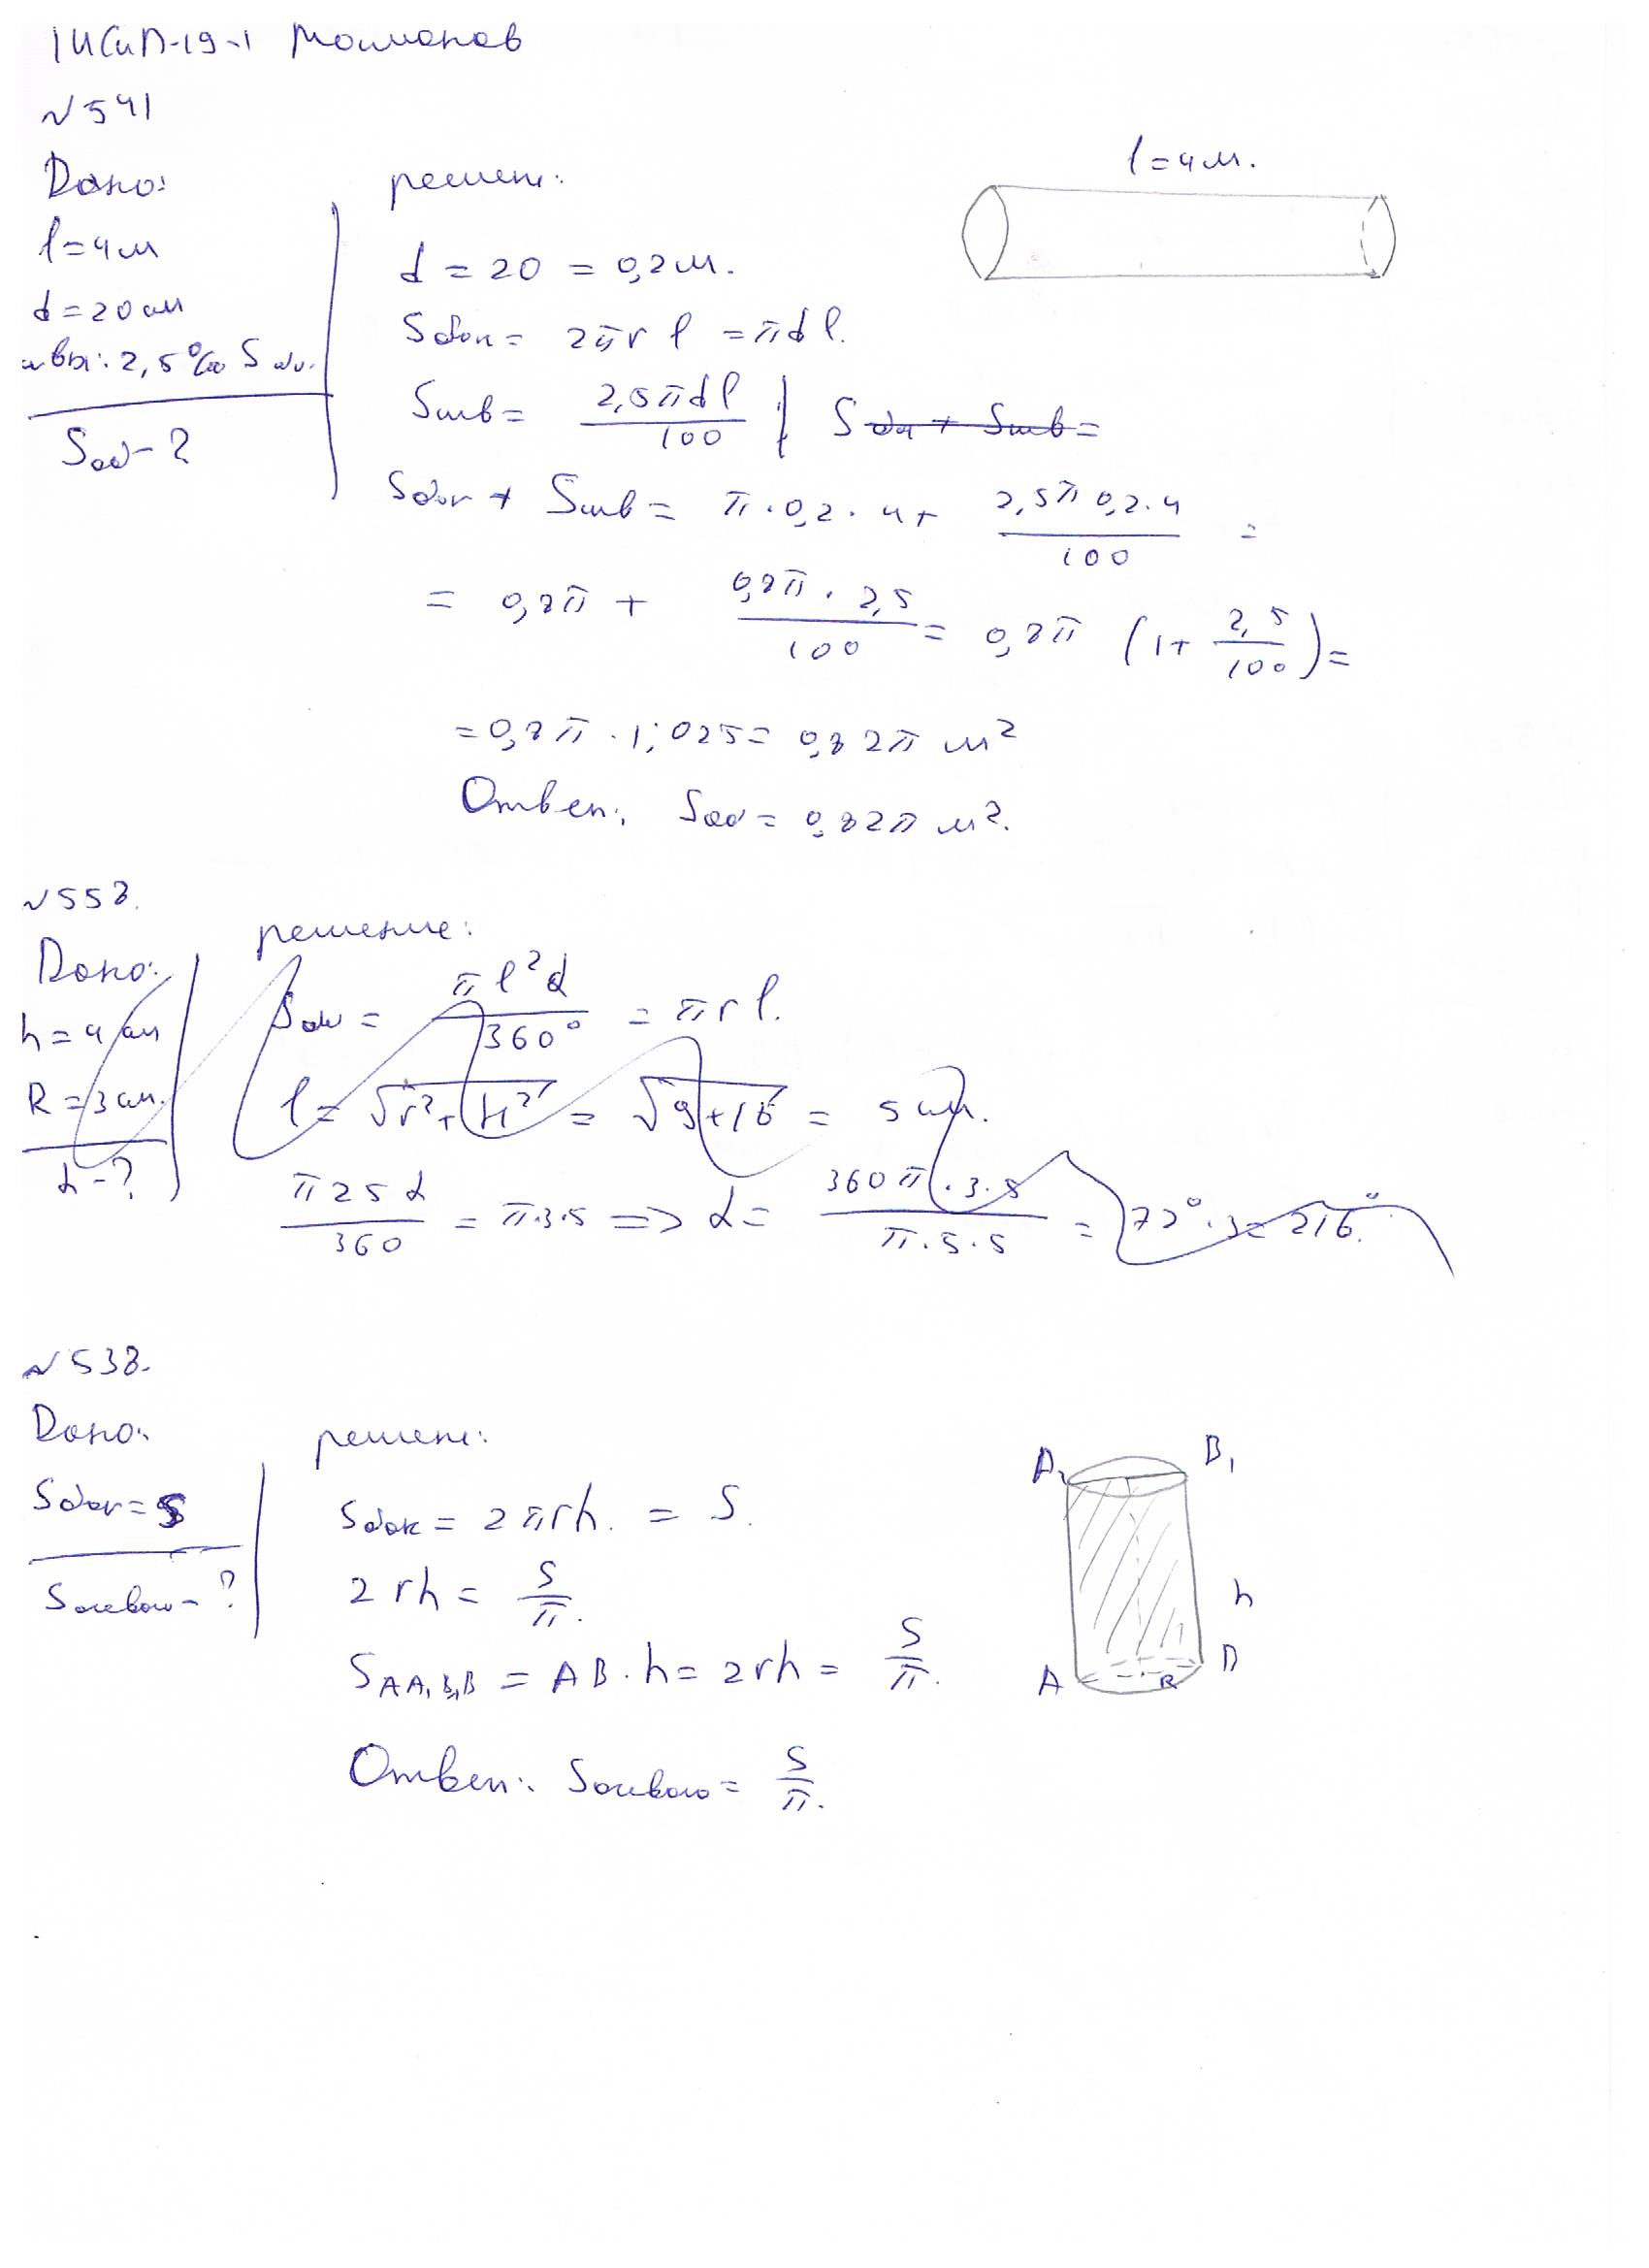 1ИСиП-19-1
№541
Дано:
l=4м
d=20см
швы: 2,5% Sбок.
Sоб-?
решен:
l=4м.
d = 20 = 0,2м.
Sбок = 2πr l = πdl.
Sшв = 2,5πdl/100 | Sбок + Sшв =
Sбок + Sшв = π·0,2·4+ 2,5π0,2·4/100 =
= 0,8π + 0,8π·2,5/100 = 0,8π (1+ 2,5/100) =
=0,8π·1,025= 0,82π м²
Ответ: Sоб = 0,82π м².
№558.
Дано:
h=4см
R=3см.
α-?
решение:
Sбок = πl²α/360° = πrl.
l = √r²+h² = √9+16 = 5см.
π25α/360 = π·3·5 => α = 360π·3·5/π·5·5 = 72°·3= 216°.
№538.
Дано:
Sбок=S
Sосевого-?
решен:
Sбок = 2πrh. = S.
2rh = S/π.
SAA₁B₁B = AB·h= 2rh = S/π.
Ответ: Sосевого = S/π.
A₁
B₁
h
A
B
R